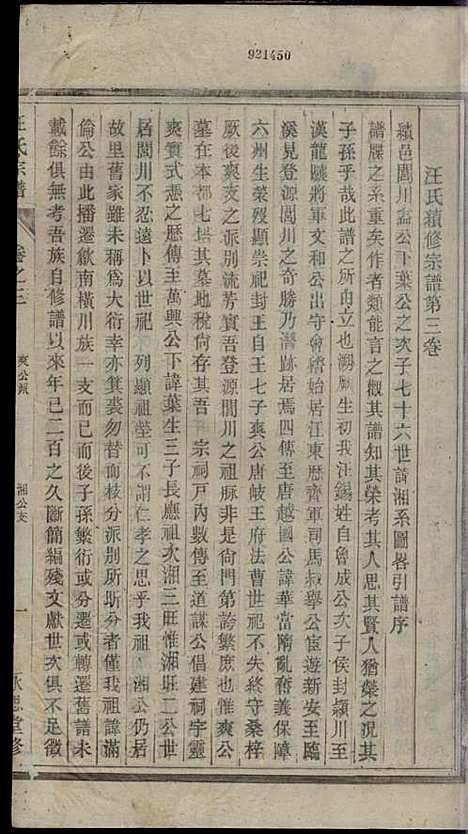 921450
汪氏續修宗譜第三卷
績邑閬川盉公下葉公之次子七十六世諱湘系圖畧引譜序
譜牒之系重矣作者類能言之概其譜知其榮考其人思其賢人猶榮之況其
子孫乎哉此譜之所由立也溯厥生初我汪錫姓自魯成公次子侯封潁川至
漢龍驤將軍文和公出守會稽始居江東歷齊軍司馬叔舉公宦遊新安至臨
溪見登源閬川之奇勝乃潛跡居焉四傳至唐越國公諱華當隋亂奮義保障
六州生榮歿顯崇祀封王自王七子爽公唐岐王府法曹世祀不失終守桑梓
厥後爽支之派別流芳實吾登源閬川之祖脉非是何門第誇繁庶也惟爽公
墓在本都七垬其墓地稅尚存其吾 宗祠戶內數傳至道謀公倡建祠宇靈
爽實式憑之歷傳至萬興公下諱葉生三子長應祖次湘三旺惟湘旺二公世
居閬川不忍遠卜以世祀 下列顯祖塋可不謂仁孝之思乎我祖 湘公仍居
故里舊家雖未稱爲大衍幸亦箕裘勿替而枝分派別所昕分者僅我祖諱滿
倫公由此播遷歙南橫川族一支而已而後子孫繁衍或分遷或轉遷舊譜未
載餘俱無考吾族自修譜以來年已二百之久斷簡編殘文獻世次俱不足徵
汪氏宗譜
卷之三
爽公派
湘公支
一